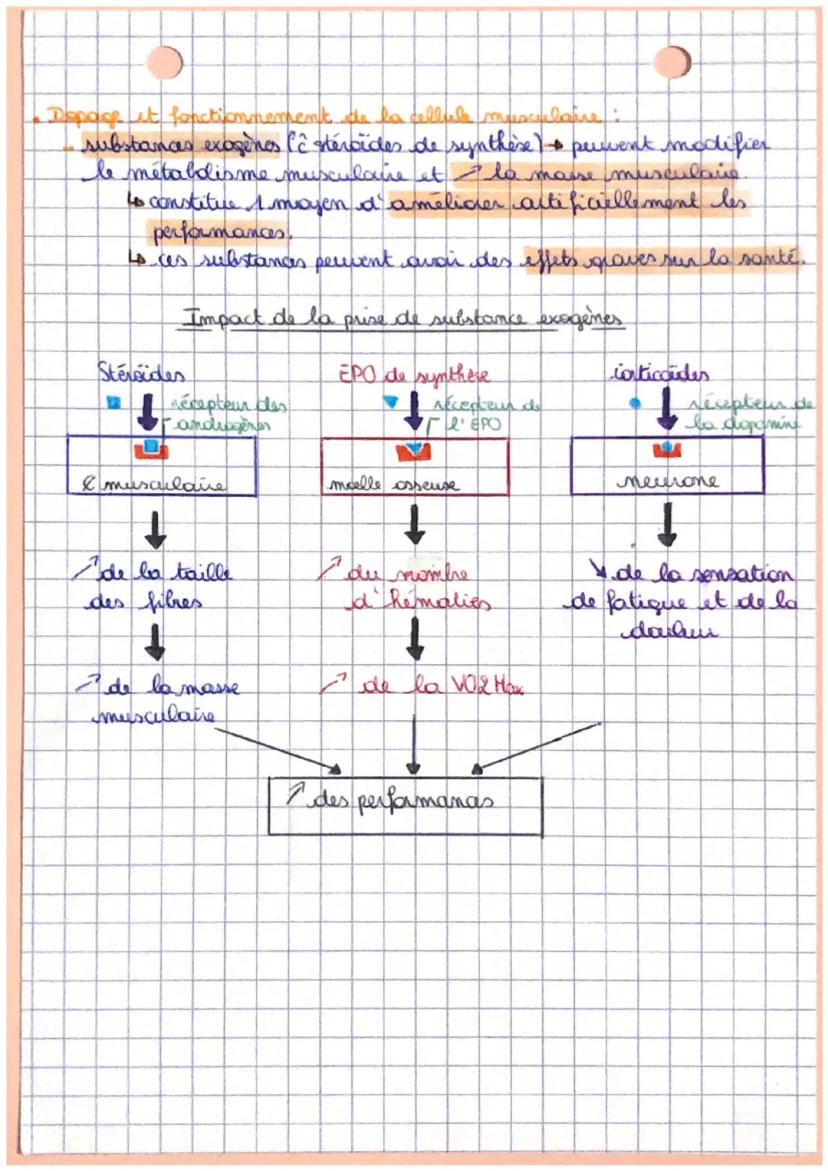 . Dopage et fonctionnement de la cellule musculaire :
- substances exogènes (ĉ stéroïdes de synthèse) → peuvent modifier
le métabolisme musculaire et ↗ la masse musculaire.
↳ constitue 1 moyen d'améliorer artificiellement les
performances.
↳ ces substances peuvent avoir des effets graves sur la santé.
Impact de la prise de substance exogènes
Stéroïdes
récepteur des
androgènes
musculaire
↗ de la taille
des fibres
↗ de la masse
musculaire
EPO de synthèse
récepteur de
l'EPO
moelle osseuse
↗ du nombre
d'hématies
↗ de la VO2 Max
corticoïdes
récepteur de
la dopamine
neurone
↘ de la sensation
de fatigue et de la
douleur
↗ des performances